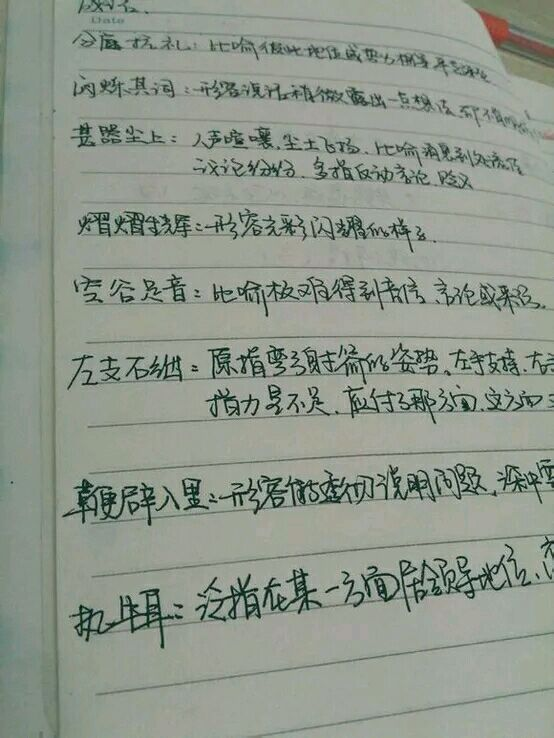 Date
分庭抗礼：比喻彼此地位或势力相等，平
闪烁其词：形容说话稍微露出一点想法，却不肯
甚嚣尘上：人声喧嚷，尘土飞扬，比喻消息到处流传
议论纷纷，多指反动言论，贬义
熠熠生辉：形容光彩闪耀的样子.
空谷足音：比喻极难得到音信、言论或来访.
左支右绌：原指弯弓射箭的姿势。左手支持，右
指力量不足，应付了那方面，这方面
鞭辟入里：形容能透彻说明问题，深中要
执牛耳：泛指在某一方面居领导地位，